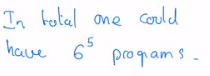 In total one could
have 6⁵ programs.